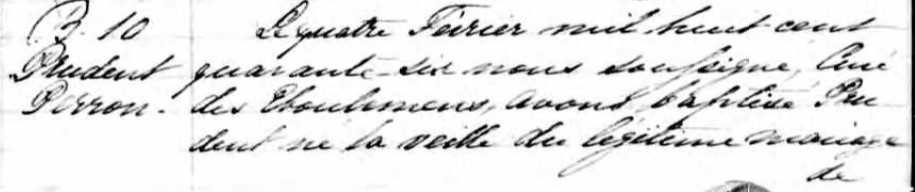 B. 10
Prudent
Perron.
Le quatre Février mil huit cent
quarante-six nous soussigné, Curé
des Eboulemens, avons baptisé Pru
dent né la veille du légitime mariage
de